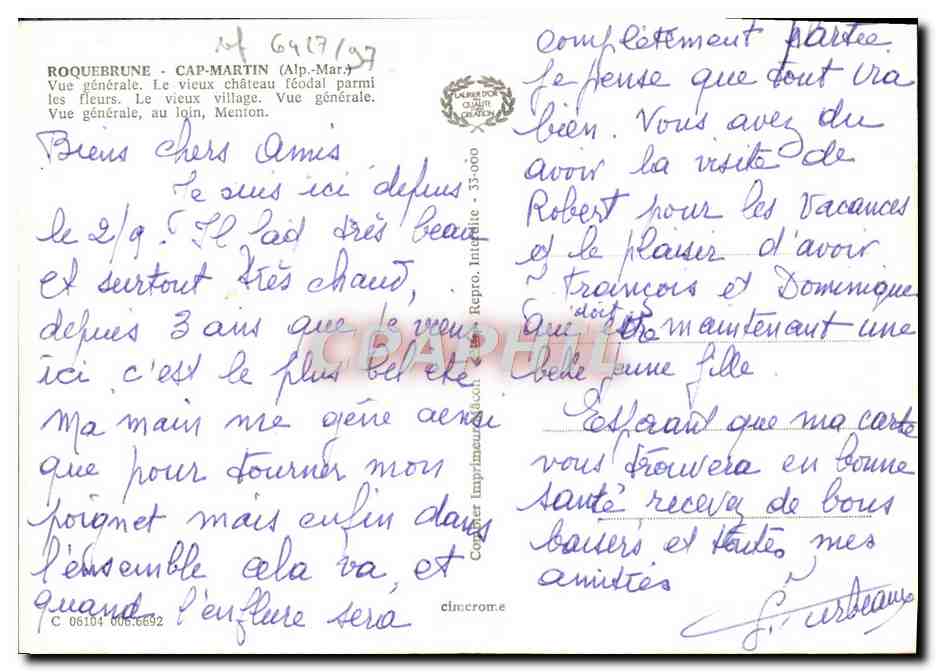 Ref 6427/97
ROQUEBRUNE - CAP-MARTIN (Alp.-Mar.)
Vue générale. Le vieux château féodal parmi
les fleurs. Le vieux village. Vue générale.
Vue générale, au loin, Menton.
LAURIER D'OR
QUALITE
CREATION
Biens chers Amis
Je suis ici depuis
le 2/9. Il fait très beau
et surtout très chaud,
depuis 3 ans que je viens
ici c'est le plus bel été
Ma main me gène ainsi
que pour tourner mon
poignet mais enfin dans
l'ensemble cela va, et
quand l'enflure sera
C 06104 006.6692
Combier Imprimeur Mâcon Repro. Interdite - 33-000
cimcrome
complètement partie.
Je pense que tout ira
bien. Vous avez du
avoir la visite de
Robert pour les Vacances
et le plaisir d'avoir
François et Dominique
que doit être maintenant une
belle jeune fille.
Espérant que ma carte
vous trouvera en bonne
santé recevez de bons
baisers et toutes mes
amitiés
CPAPHIL